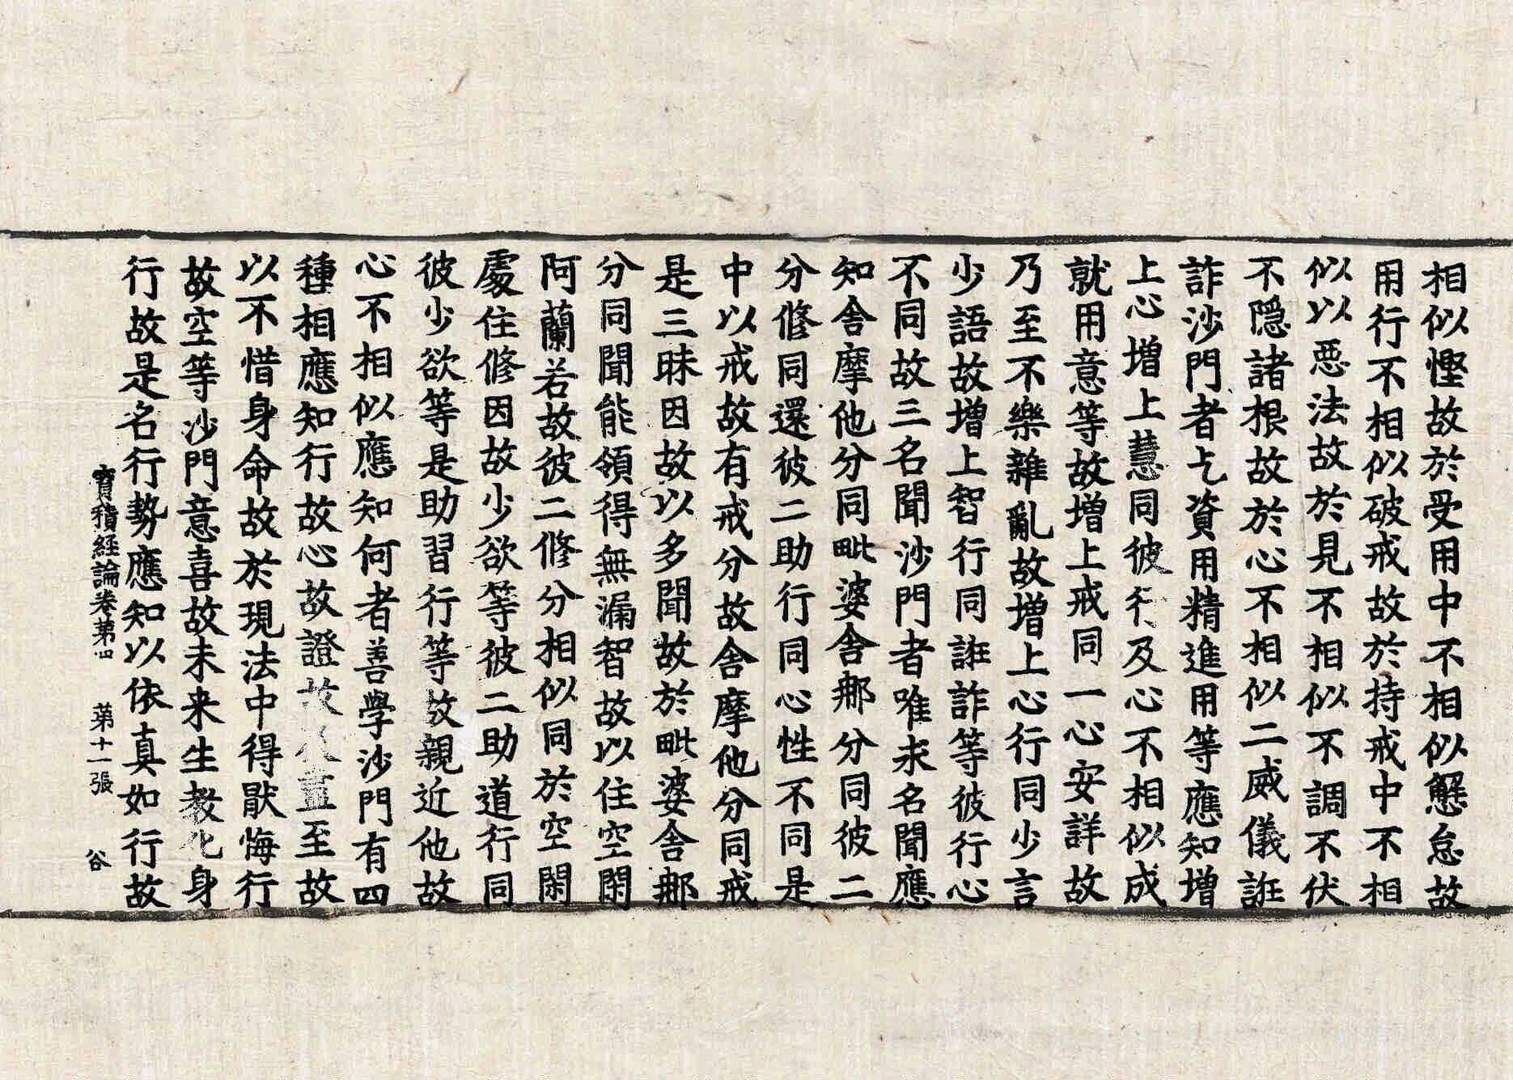 相似慳故於受用中不相似懈怠故
用行不相似破戒故於持戒中不相
似以惡法故於見不相似不調不伏
不隱諸根故於心不相似二威儀誑
詐沙門者乞資用精進用等應知增
上心增上慧同彼行及心不相似成
就用意等故增上戒同一心安詳故
乃至不樂雜亂故增上心行同少言
少語故增上智行同誑詐等彼行心
不同故三名聞沙門者唯求名聞應
知舍摩他分同毗婆舍那分同彼二
分修同還彼二助行同心性不同是
中以戒故有戒分故舍摩他分同戒
是三昧因故以多聞故於毗婆舍那
分同聞能領得無漏智故以住空閑
阿蘭若故彼二修分相似同於空閑
處住修因故少欲等彼二助道行同
彼少欲等是助習行等故親近他故
心不相似應知何者善學沙門有四
種相應知行故心故證故至故
以不惜身命故於現法中得厭悔行
故空等沙門意喜故未来生教化身
行故是名行勢應知以依真如行故
寶積經論卷第四 第十一張 谷